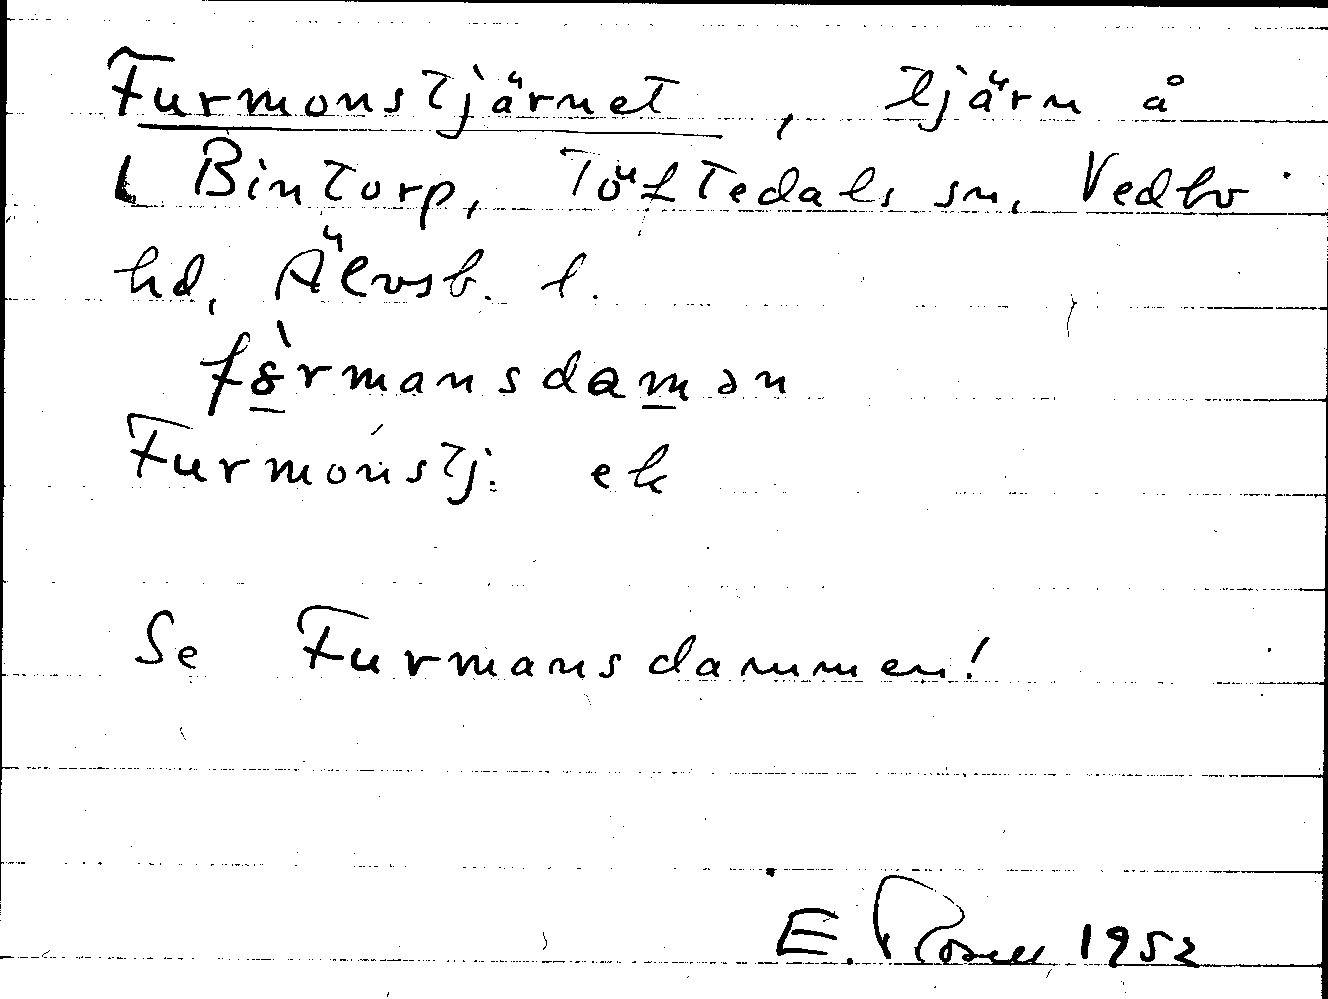 Furmonstjärnet, tjärn å
L Bintorp, Töftedals sn, Vedbo
hd, Älvsb. l.
fɵ̀rmansdamən
Furmonstj. ek
Se Furmansdammen!
E. Rosell 1952